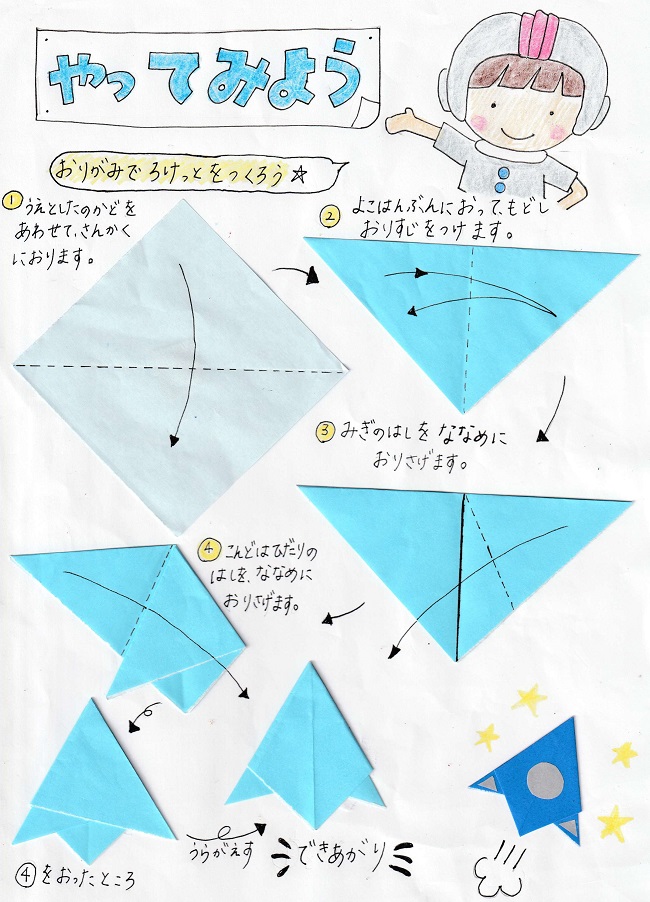 やってみよう
おりがみでろけっとをつくろう☆
① うえとしたのかどを
あわせて、さんかく
におります。
② よこはんぶんにおって、もどし
おりすじをつけます。
③ みぎのはしをななめに
おりさげます。
④ こんどはひだりの
はしを、ななめに
おりさげます。
④をおったところ
うらがえす
できあがり